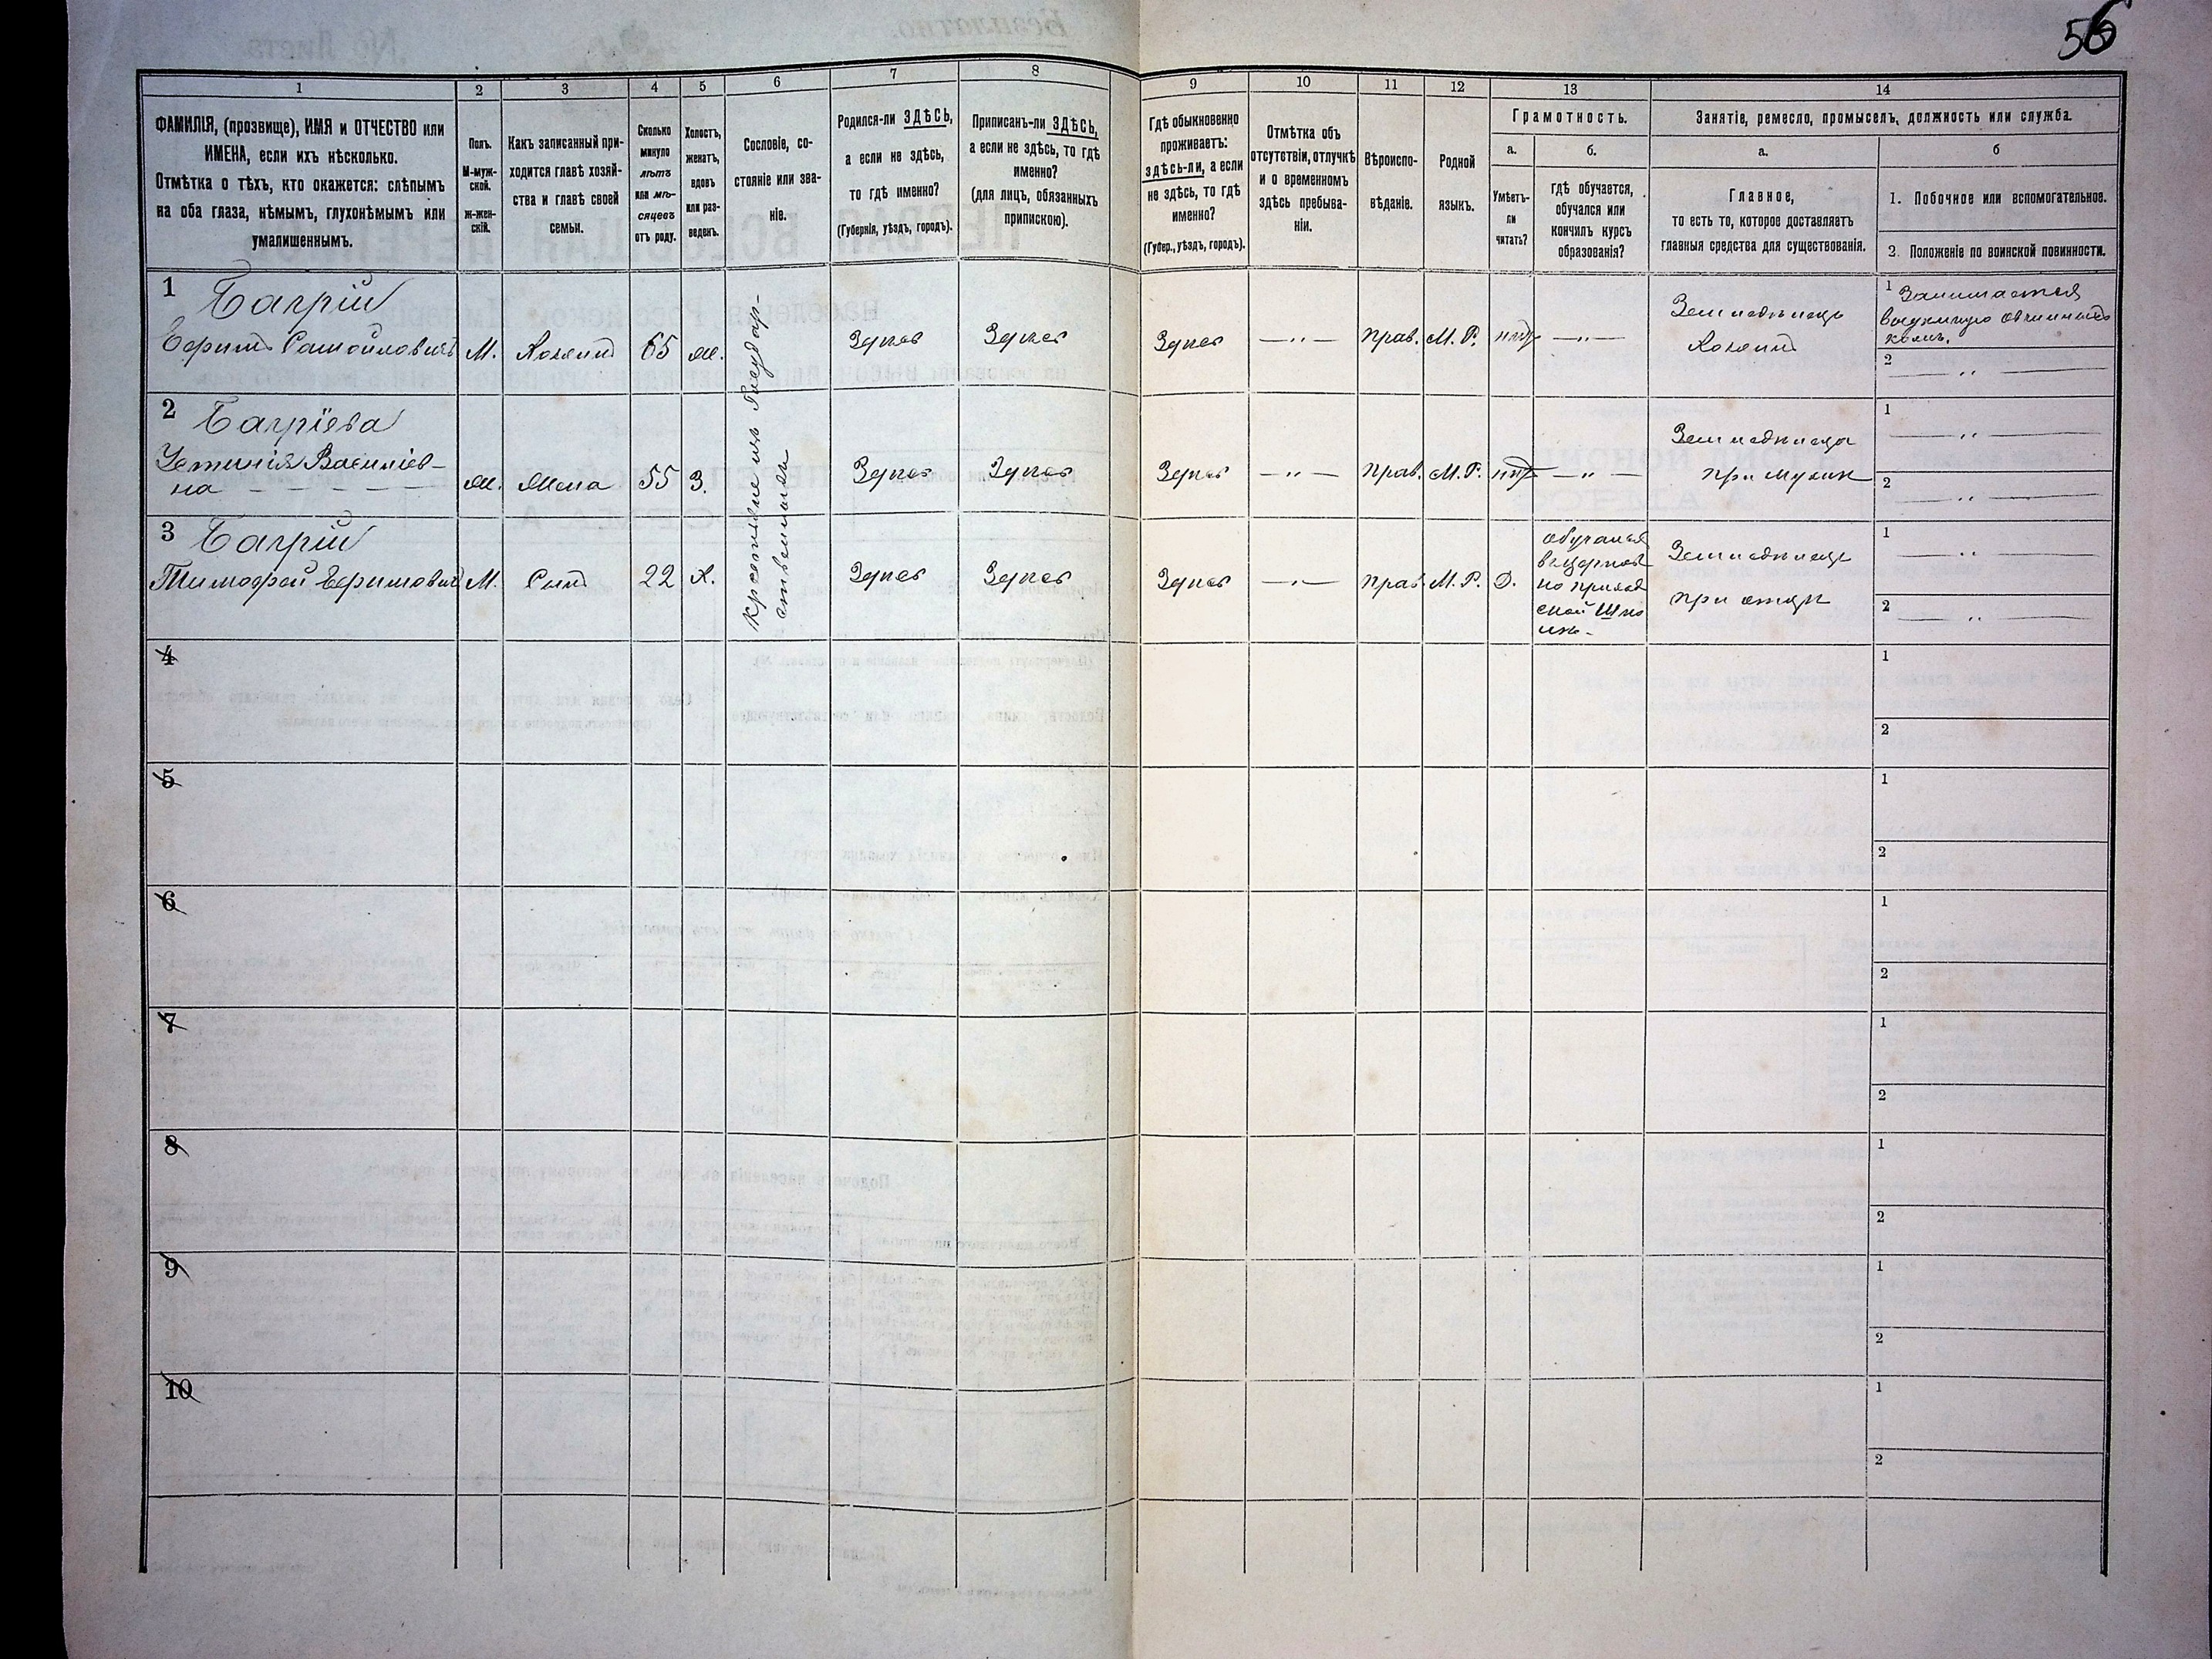 56
1 2 3 4 5 6 7 8 9 10 11 12 13 14
ФАМИЛІЯ, (прозвище), ИМЯ и ОТЧЕСТВО или
ИМЕНА, если ихъ нѣсколько.
Отмѣтка о тѣхъ, кто окажется: слѣпымъ
на оба глаза, нѣмымъ, глухонѣмымъ или
умалишеннымъ.
Полъ.
М-муж-
ской.
ж-жен-
скій.
Какъ записанный при-
ходится главѣ хозяй-
ства и главѣ своей
семьи.
Сколько
минуло
лѣтъ
или мѣ-
сяцевъ
отъ роду.
Холостъ,
женатъ,
вдовъ
или раз-
веденъ.
Сословіе, со-
стояніе или зва-
ніе.
Родился-ли ЗДѢСЬ,
а если не здѣсь,
то гдѣ именно?
(Губернія, уѣздъ, городъ).
Приписанъ-ли ЗДѢСЬ,
а если не здѣсь, то гдѣ
именно?
(для лицъ, обязанныхъ
припискою).
Гдѣ обыкновенно
проживаетъ:
здѣсь-ли, а если
не здѣсь, то гдѣ
именно?
(Губер., уѣздъ, городъ).
Отмѣтка объ
отсутствіи, отлучкѣ
и о временномъ
здѣсь пребыва-
ніи.
Вѣроиспо-
вѣданіе.
Родной
языкъ.
Грамотность.
а.
Умѣетъ-
ли
читать?
б.
гдѣ обучается,
обучался или
кончилъ курсъ
образованія?
Занятіе, ремесло, промыселъ, должность или служба.
а.
Главное,
то есть то, которое доставляетъ
главныя средства для существованія.
б
1. Побочное или вспомогательное.
2. Положеніе по воинской повинности.
Крестьяне изъ Государ-
ственныхъ
1 Багрій
Ефимъ Самойловичъ М. Хозяинъ 65 ж. Здѣсь Здѣсь Здѣсь — „ — Прав. М. Р. нѣтъ — „ —
Земледѣлецъ
Хозяинъ
1 Занимается
2 — „ —
2 Багріева
Устинія Василіев-
на ж. Жена 55 З. Здѣсь Здѣсь Здѣсь — „ — Прав. М. Р. нѣтъ — „ —
Земледѣлецъ
при мужѣ
1 — „ —
2 — „ —
3 Багрій
Тимофей Ефимовичъ М. Сынъ 22 Х. Здѣсь Здѣсь Здѣсь — „ — Прав. М. Р. Д.
обучался
в церков
но приход
ской Шко
лѣ.
Земледѣлецъ
при отцѣ
1 — „ —
2 — „ —
4 1
2
5 1
2
6 1
2
7 1
2
8 1
2
9 1
2
10 1
2